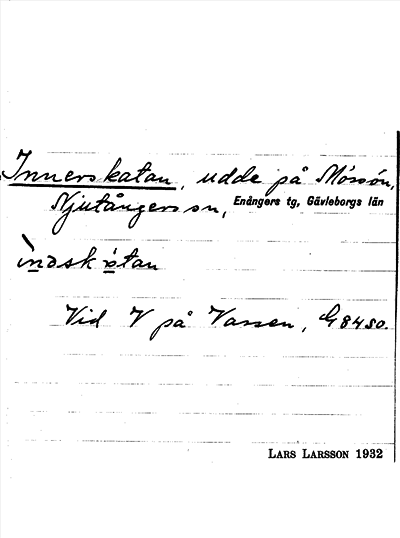 Innerskatan, udde på Mössön,
Njutångers sn, Enångers tg, Gävleborgs län
ìnǝskàtan
Vid V på Vassen, G 84 so.
LARS LARSSON 1932